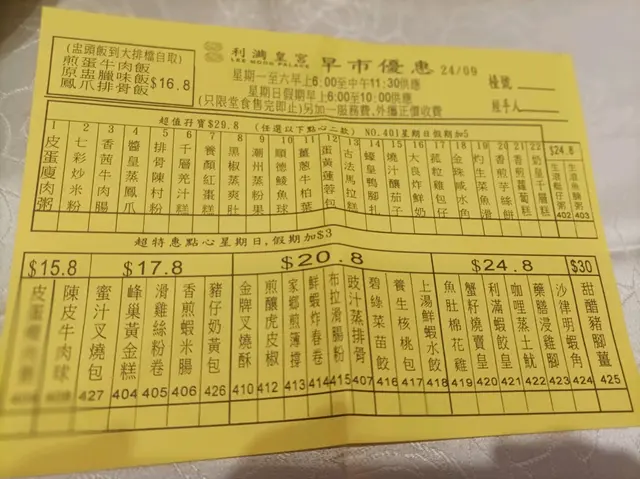 (盅頭飯到大排檔自取)
煎蛋牛肉飯
原盅臘味飯
鳳爪排骨飯
$16.8
利滿皇宮
早市優惠 24/09
星期一至六早上6:00至中午11:30供應
星期日假期早上6:00至10:00供應
(只限堂食售完即止)另加一服務費,外攜正價收費
檯號
經手人
超值孖寶$29.8 (任選以下點心二款) NO.401星期日假期加5
1 皮蛋廋肉粥
2 七彩炒米粉
3 香茜牛肉腸
4 醬皇蒸鳳爪
5 排骨陳村粉
6 千層羌汁糕
7 養顏紅棗糕
8 黑椒蒸爽肚
9 潮州蒸粉果
10 順德鯪魚球
11 薑蔥牛柏葉
12 蛋黃蓮蓉包
13 古法馬拉糕
14 蠔皇鴨腳扎
15 燒汁釀茄子
16 大良炸鮮奶
17 菰粒雞包仔
18 金珠咸水角
19 灼生菜魚滑
20 香煎芋絲餅
21 香煎蘿蔔糕
22 奶皇千層糕
$24.8
402
403
超特惠點心星期日,假期加$3
$15.8
陳皮牛肉球
$17.8
蜜汁叉燒包 427
峰巢黃金糕 404
滑雞絲粉卷 405
香煎蝦米腸 406
豬仔奶黃包 426
$20.8
金牌叉燒酥 410
煎釀虎皮椒 412
家鄉煎薄撐 413
鮮蝦炸春卷 414
布拉滑腸粉 415
豉汁蒸排骨 407
碧綠菜苗餃 416
養生核桃包 417
上湯鮮蝦水餃 418
$24.8
魚肚棉花雞 419
蟹籽燒賣皇 420
利滿蝦餃皇 421
咖哩蒸土魷 422
藥膳浸雞腳 423
沙律明蝦角 424
$30
甜醋豬腳薑 425